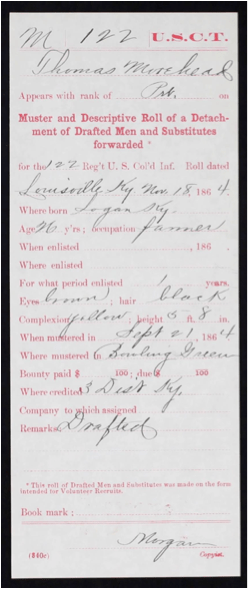 M | 122 | U.S.C.T.
Thomas Morehead
Appears with rank of Prt. on
Muster and Descriptive Roll of a Detach-
ment of Drafted Men and Substitutes
forwarded *
for the 122 Reg't U. S. Col'd Inf. Roll dated
Louisville Ky Nov. 18, 1864
Where born Logan Ky.
Age 26 y'rs; occupation farmer
When enlisted , 186 .
Where enlisted
For what period enlisted 1 years.
Eyes brown ; hair black
Complexion yellow ; height 5 ft. 8 in.
When mustered in Sept 21 , 1864
Where mustered in Bowling Green
Bounty paid $ 100 ; due $ 100
Where credited 3 Dist Ky.
Company to which assigned
Remarks: Drafted
* This roll of Drafted Men and Substitutes was made on the form
intended for Volunteer Recruits.
Book mark :
Morgan
(340c) Copyist.